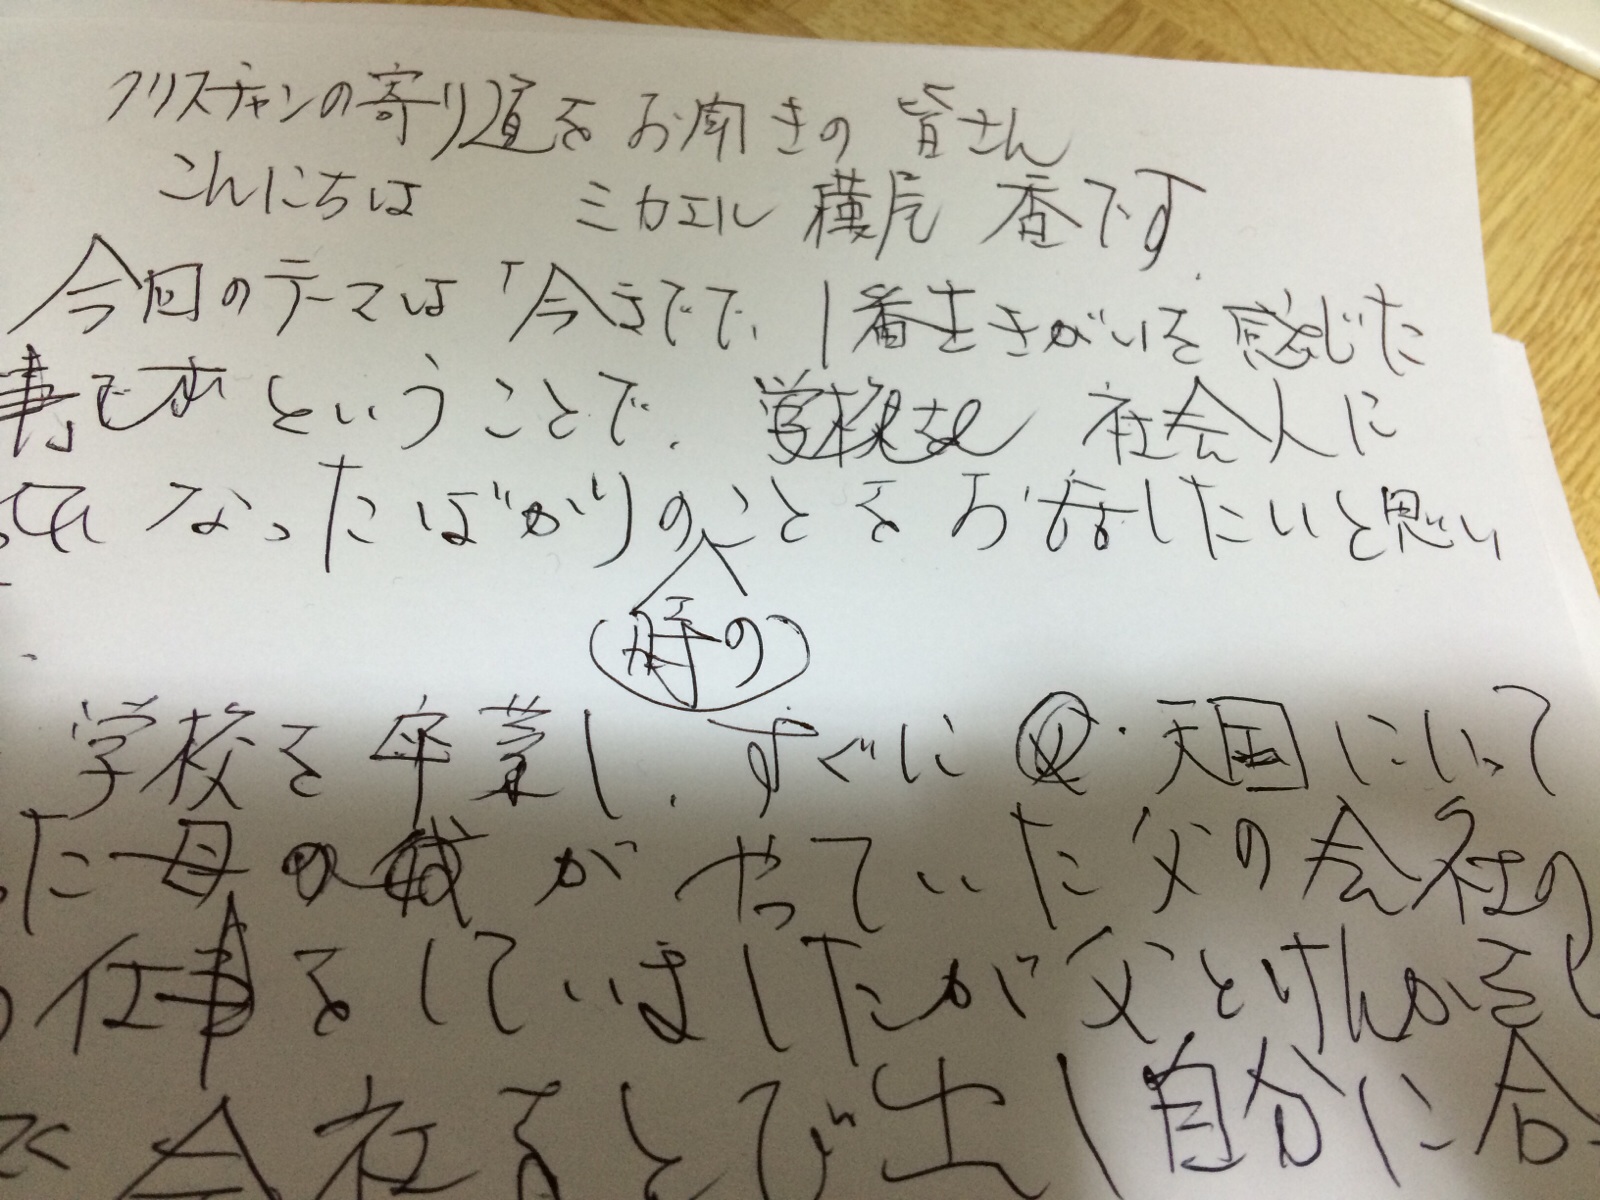 クリスチャンの寄り道をお聞きの皆さん
こんにちは ミカエル 横尾 香です.
今回のテーマは「今までで、1番生きがいを感じた
事です ということで. 社会人に
なったばかりのことをお話したいと思い
(時の)
学校を卒業し. すぐに 天国にいって
た母 が やっていた父の会社の
仕事をしていましたが父とけんかをし
会社をとび出し自分に合